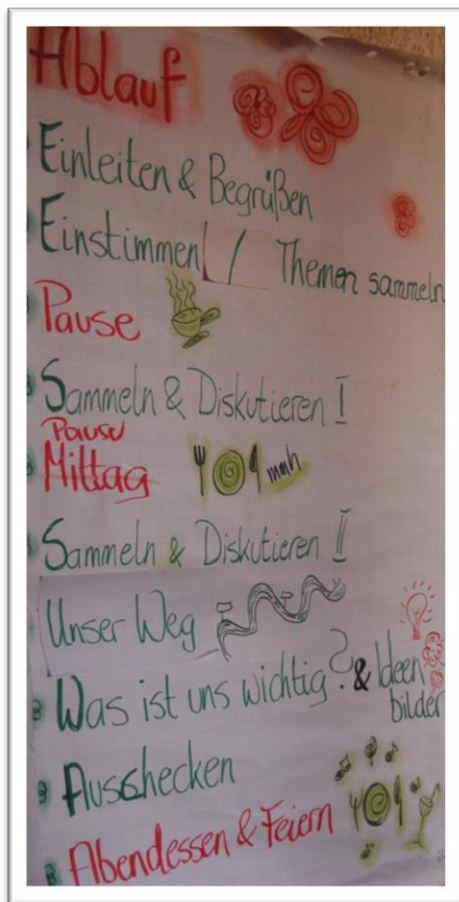 Ablauf
Einleiten & Begrüßen
Einstimmen / Themen sammeln
Pause
Sammeln & Diskutieren I
Pause
Mittag mmh
Sammeln & Diskutieren II
Unser Weg
Was ist uns wichtig? & Ideen
bilder
Auschecken
Abendessen & Feiern